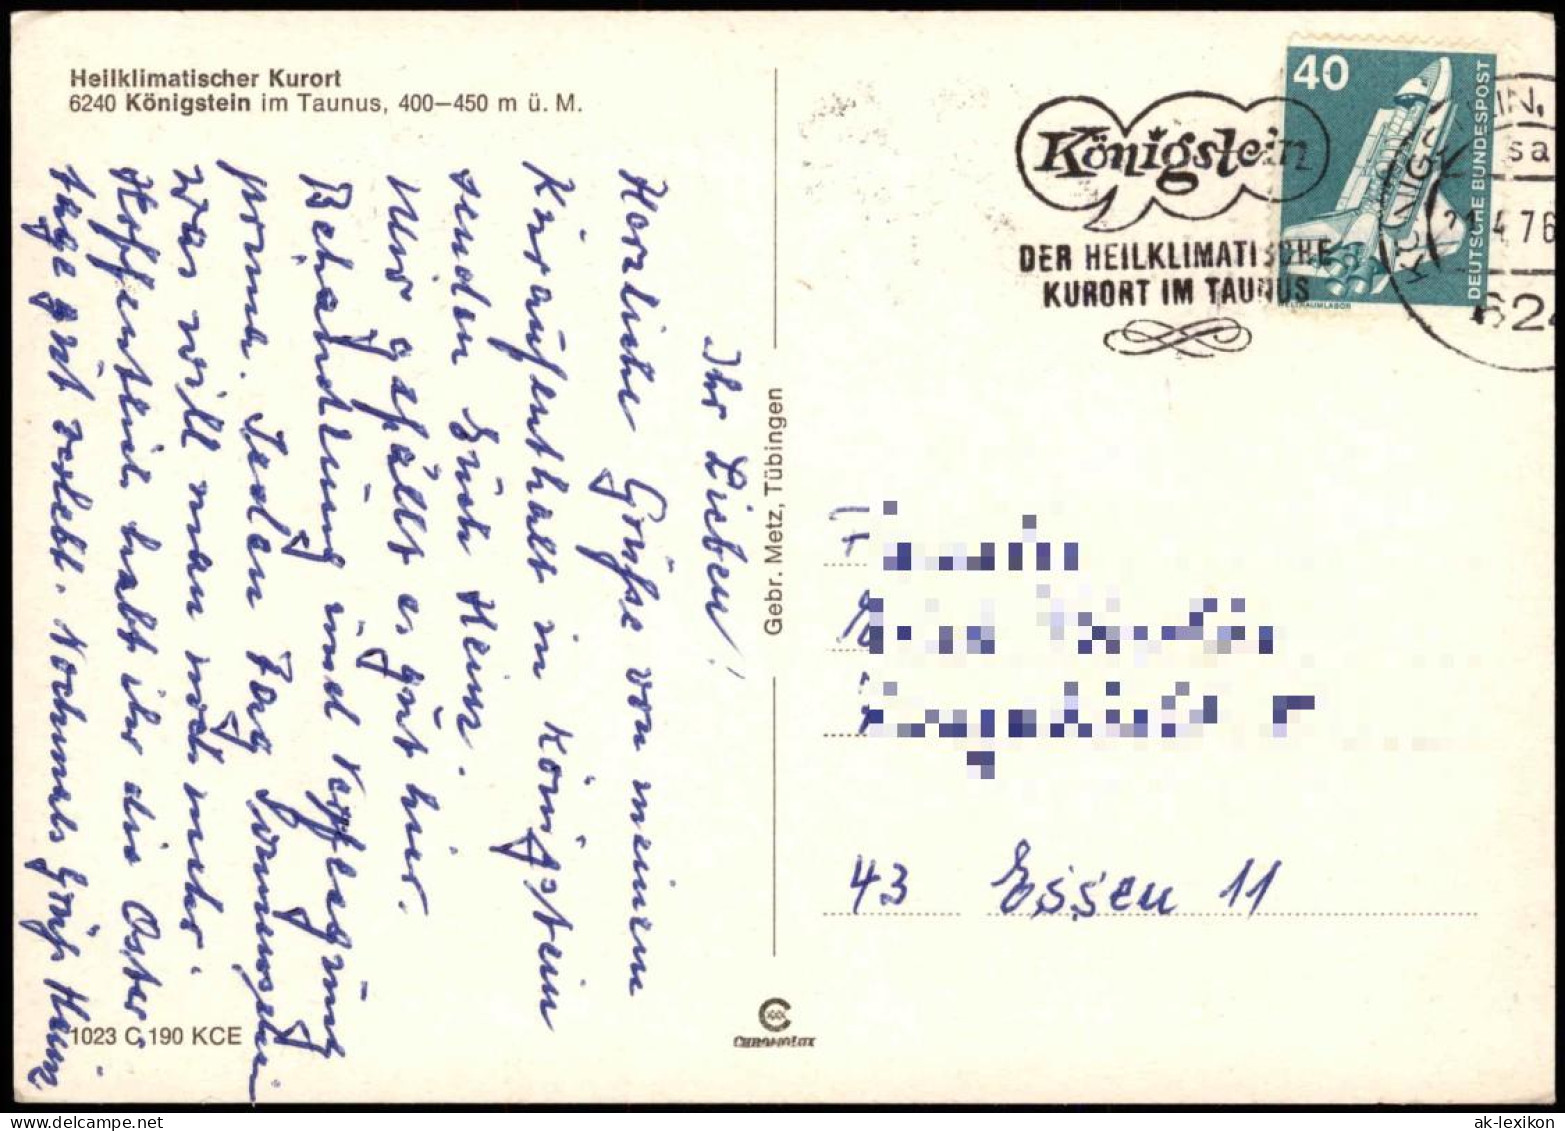 Heilklimatischer Kurort
6240 Königstein im Taunus, 400—450 m ü. M.
Ihr Lieben!
Herzliche Grüße von meinem
Kuraufenthalt in Königstein
senden Euch Heinz.
Mir gefällt es gut hier.
Behandlung und Verpflegung
prima. Jeden Tag Sonnenschein
was will man noch mehr.
Hoffentlich habt ihr die Oster-
tage gut verlebt. Nochmals Grüße Heinz
1023 C 190 KCE
Gebr. Metz, Tübingen
CHROMOLUX
Königstein
DER HEILKLIMATISCHE
KURORT IM TAUNUS
40
DEUTSCHE BUNDESPOST
WELTRAUMLABOR
KÖNIGSTEIN
21.4.76
624
43 Essen 11
ak-lexikon